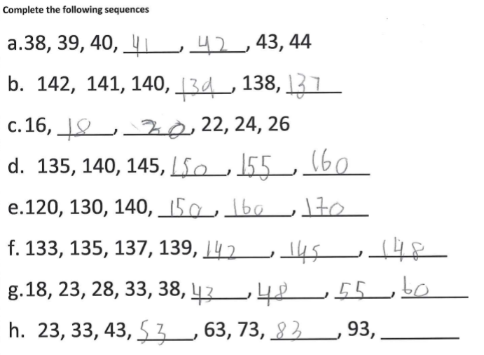 Complete the following sequences
a.38, 39, 40, 41, 42, 43, 44
b. 142, 141, 140, 139, 138, 137
c.16, 18, 20, 22, 24, 26
d. 135, 140, 145, 150, 155, 160
e.120, 130, 140, 150, 160, 170
f. 133, 135, 137, 139, 142, 145, 148
g.18, 23, 28, 33, 38, 43, 48, 55, 60
h. 23, 33, 43, 53, 63, 73, 83, 93, ______